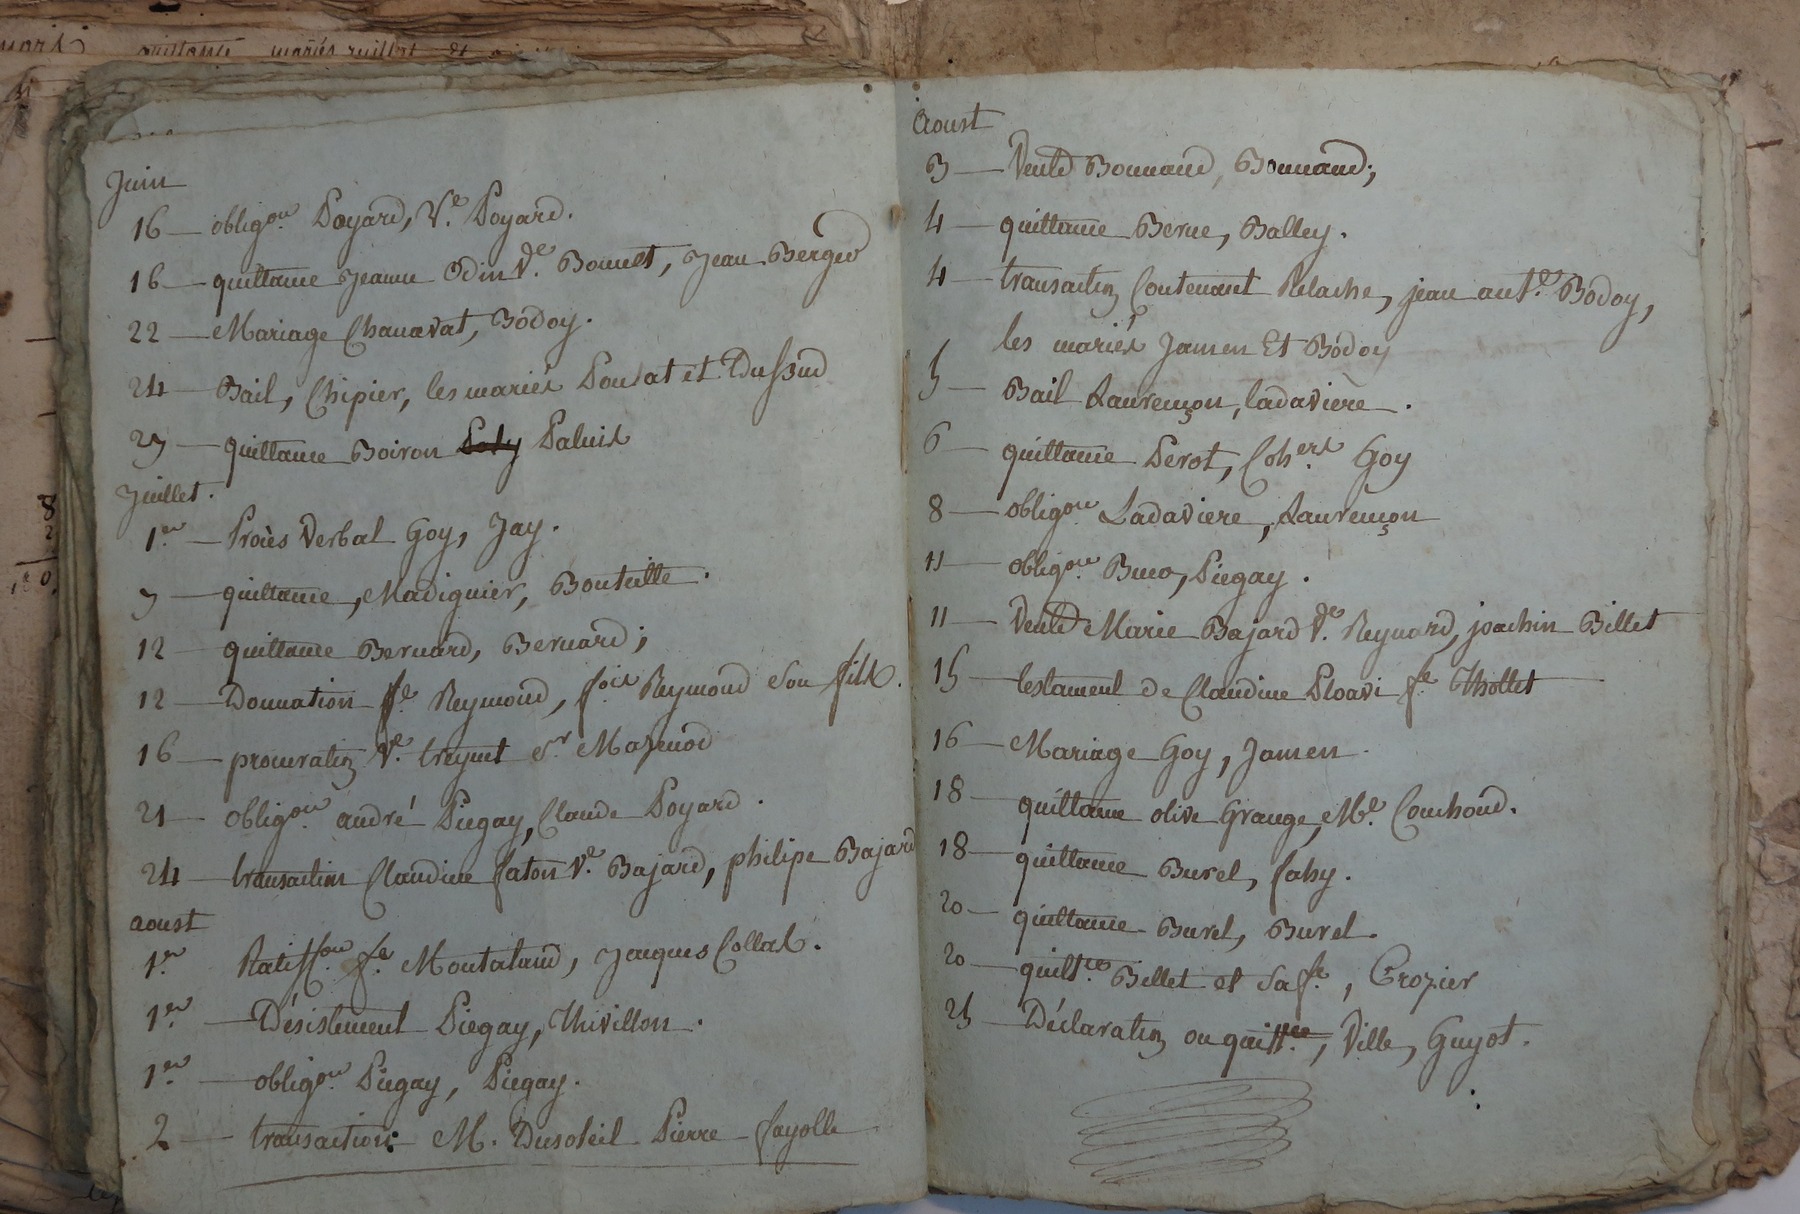 quittance mariés
Juin
16 — obligon. Poyard, Ve. Poyard.
16 — quittance Jeanne Odin Ve. Bonnet, Jean Berger
22 — Mariage Chanavat, Bodoy.
24 — Bail, Chipier, les mariés Ponsat et Dussud
27 — quittance Boiron Paluis
Juillet.
1er — Procès Verbal Goy, Jay.
7 — quittance, Madignier, Bouteille.
12 — quittance Bernard, Bernard;
12 — Donnation fe. Reymond, fois Reymond son fils.
16 — procuration Ve. treynet Sr Mazenod
21 — obligon. andré Piegay, Claude Poyard.
24 — transaction Claudine faton Ve. Bajard, philipe Bajard
aoust
1er Ratiffon. fe. Montaland, Jacques Collas.
1er — Désistement Piegay, Thivillon.
1er — obligon. Piegay, Piegay.
2 — transaction M. Dusoleil Pierre fayolle
Aoust
3 — Vente Bonnand, Bonnand;
4 — quittance Berne, Balley.
4 — transaction Contenant Relache, jean ante. Bodoy,
les mariés Jamen Et Bodoy
5 — Bail Laurençon, ladavière.
6 — quittance Perot, Cohers. Goy
8 — obligon. Ladaviere, Laurençon
11 — obligon. Piegay.
11 — Vente Marie Bajard Ve. Reynard, joachin Billet
15 — testament de Claudine fe Thollet
16 — Mariage Goy, Jamen.
18 — quittance olive Grange, Me. Couchoud.
18 — quittance Burel, fahy.
20 — quittance Burel, Burel.
20 — quittce. Billet et Sa fe., Crozier
25 — Déclaration ou quittce., Ville, Guyot.